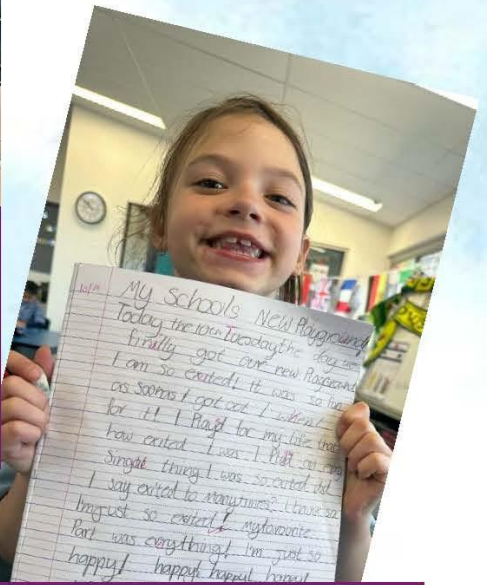 My Schools New Playground
Today the 10th Tuesday the day we
finally got our new Playground
I am so exited! it was so fun
as soon as I got out I went
for it! I Playd for my life thats
how exited I was I Plad on every
Singal thing I was so exited did
I say exited to many times? I have so
Im just so exited! my favourite
Part was everything! Im just so
happy! happy! happy! happy!